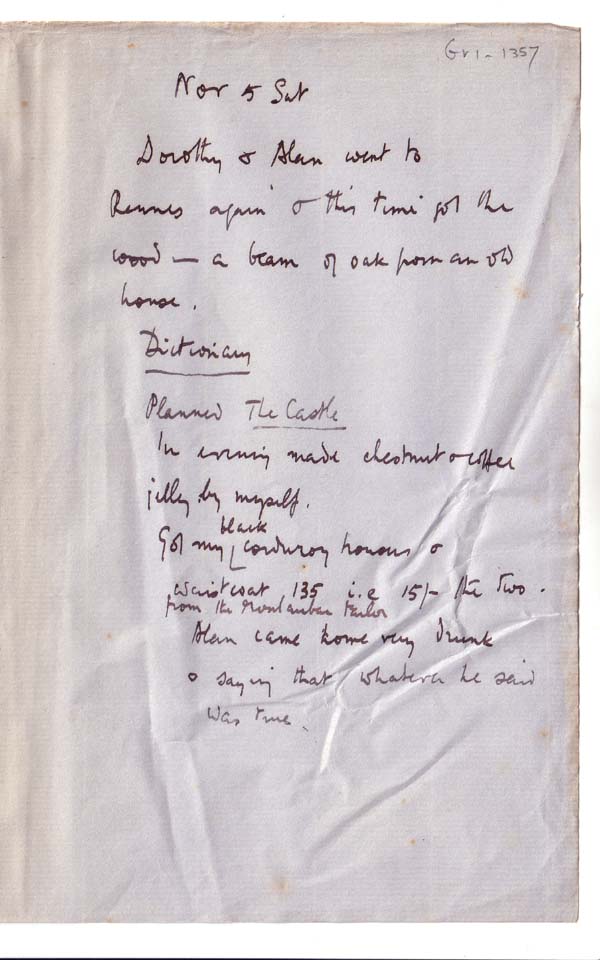 Gr1-1357
Nov 5 Sat
Dorothy & Alan went to
Rennes again & this time got the
wood — a beam of oak from an old
house.
Dictionary
Planned The Castle
In evening made chestnut & coffee
jelly by myself.
black
Got my corduroy trousers &
waistcoat 135 i.e 15/- the two.
from the Montauban tailor
Alan came home very drunk
& saying that whatever he said
was true.